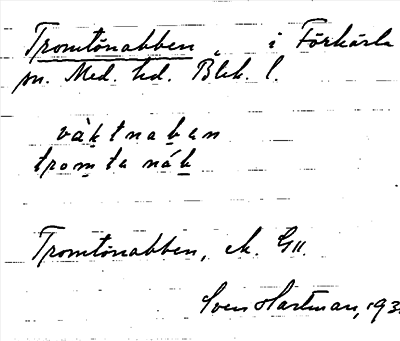 Tromtönabben i Förkärla
sn. Med. hd. Blek. l.
vàktnaban
tromta náb
Tromtönabben, ek. G11.
Sven Hartman, 193